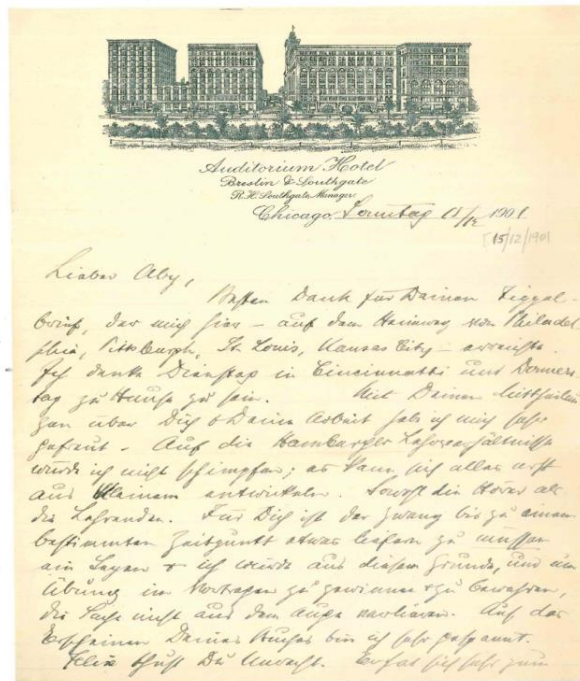 Auditorium Hotel
Breslin & Southgate
R.H. Southgate Manager
Chicago, Sonntag 15/12 1901
[15/12/1901
Lieber Aby,
Besten Dank für Deinen
brief, der mich hier – auf dem Heimweg von Philadel
phia, Pittsburgh, St. Louis, Kansas City – erreichte.
Ich denke Dienstag in Cincinnatti und Donners
tag zu Hause zu sein. Mit Deinen Mittheilun
gen über Dich & Deine Arbeit hab ich mich sehr
gefreut. – Auf die Hamburger Lehrverhältnisse
würde ich nicht schimpfen; es kann sich alles erst
aus Kleinem entwickeln. Sowohl die Hörer als
die Lehrenden. Für Dich ist der Zwang bis zu einem
bestimmten Zeitpunkt etwas liefern zu müssen
ein Segen & ich würde aus diesem Grunde, und um
Übung im Vortragen zu gewinnen & zu bewahren,
die Sache nicht aus dem Auge verlieren. Auf das
Erscheinen Deines Buches bin ich sehr gespannt.
Felix thust Du Unrecht. Er hat sich sehr zum